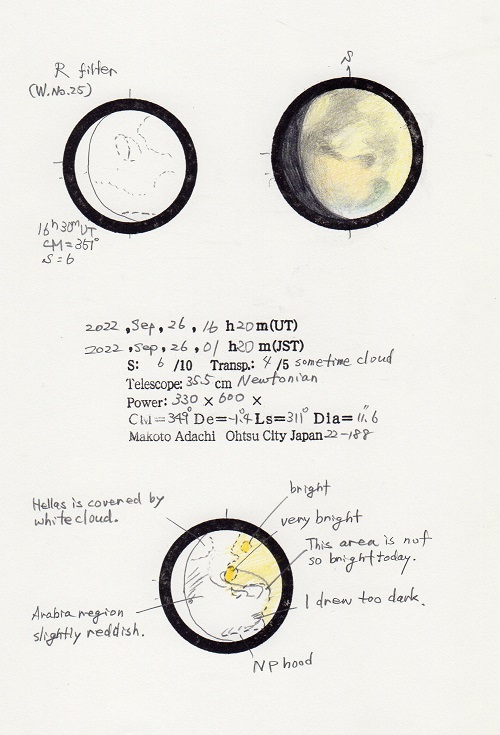 R filter
(W.No.25)
S
16h30mUT
CM=351°
S=6
2022 ,Sep, 26 , 16 h20m(UT)
2022 ,Sep, 26 , 01 h20m(JST)
S: 6 /10 Transp.: 4 /5 sometime cloud
Telescope: 35.5 cm Newtonian
Power: 330 × 600 ×
CM=349° De=-1.4 Ls=311° Dia= 11.″6
Makoto Adachi Ohtsu City Japan 22-188
bright
Hellas is covered by
white cloud.
very bright
This area is not
so bright today.
Arabia region
slightly reddish.
I drew too dark.
NPhood